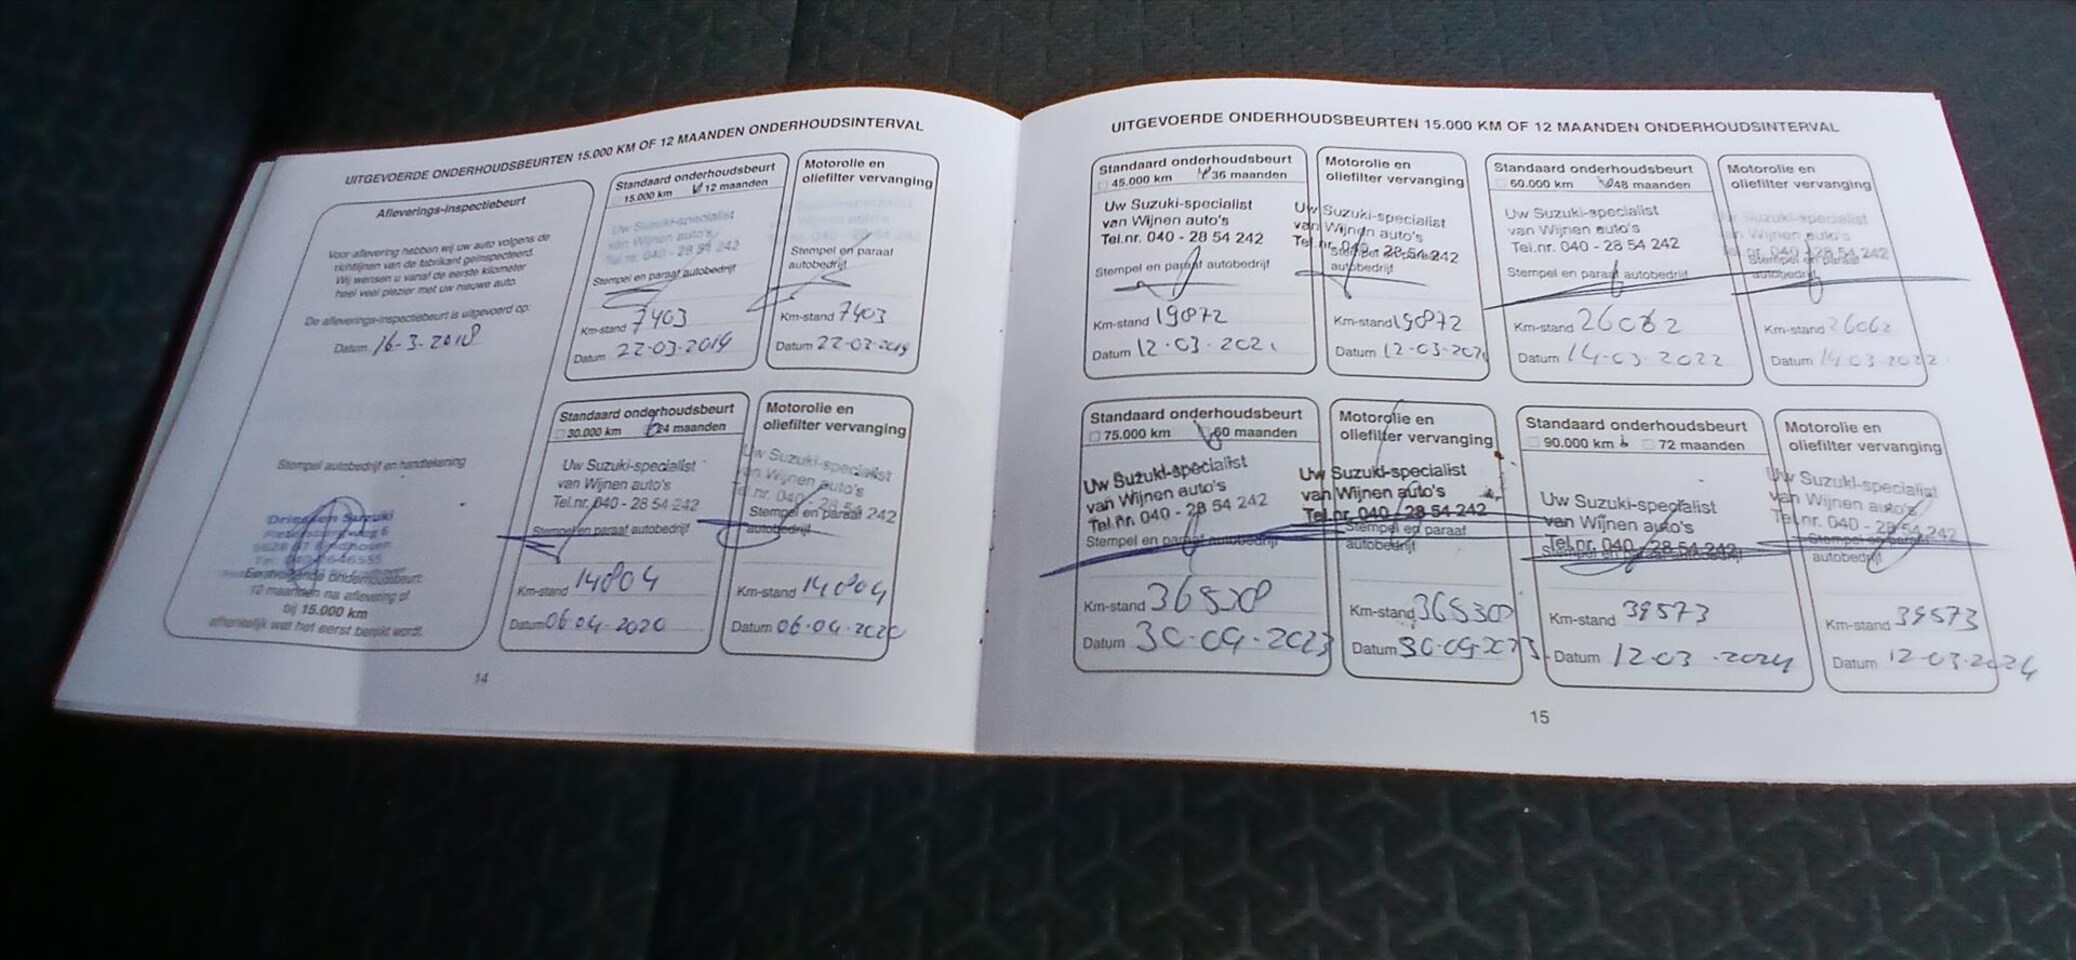 UITGEVOERDE ONDERHOUDSBEURTEN 15.000 KM OF 12 MAANDEN ONDERHOUDSINTERVAL
Afleverings-inspectiebeurt
Voor aflevering hebben wij uw auto volgens de
richtlijnen van de fabrikant geïnspecteerd.
Wij wensen u vanaf de eerste kilometer
heel veel plezier met uw nieuwe auto.
De afleverings-inspectiebeurt is uitgevoerd op:
Datum 16-3-2018
Stempel autobedrijf en handtekening
Driessen Suzuki
Eerstvolgende onderhoudsbeurt:
12 maanden na aflevering of
bij 15.000 km
afhankelijk wat het eerst bereikt wordt.
Standaard onderhoudsbeurt
15.000 km 12 maanden
Uw Suzuki-specialist
van Wijnen auto's
Tel.nr. 040 - 28 54 242
Stempel en paraaf autobedrijf
Km-stand 7403
Datum 22-03-2019
Motorolie en
oliefilter vervanging
Stempel en paraaf
autobedrijf
Km-stand 7403
Datum 22-03-2019
Standaard onderhoudsbeurt
30.000 km 24 maanden
Uw Suzuki-specialist
van Wijnen auto's
Tel.nr. 040 - 28 54 242
Stempel en paraaf autobedrijf
Km-stand 14804
Datum 06-04-2020
Motorolie en
oliefilter vervanging
Uw Suzuki-specialist
van Wijnen auto's
Tel.nr. 040 - 28 54 242
Stempel en paraaf
autobedrijf
Km-stand 14804
Datum 06-04-2020
14
UITGEVOERDE ONDERHOUDSBEURTEN 15.000 KM OF 12 MAANDEN ONDERHOUDSINTERVAL
Standaard onderhoudsbeurt
45.000 km 36 maanden
Uw Suzuki-specialist
van Wijnen auto's
Tel.nr. 040 - 28 54 242
Stempel en paraaf autobedrijf
Km-stand 19872
Datum 12-03-2021
Motorolie en
oliefilter vervanging
Uw Suzuki-specialist
van Wijnen auto's
Tel.nr. 040 - 28 54 242
Stempel en paraaf
autobedrijf
Km-stand 19872
Datum 12-03-2021
Standaard onderhoudsbeurt
60.000 km 48 maanden
Uw Suzuki-specialist
van Wijnen auto's
Tel.nr. 040 - 28 54 242
Stempel en paraaf autobedrijf
Km-stand 26062
Datum 14-03-2022
Motorolie en
oliefilter vervanging
Uw Suzuki-specialist
van Wijnen auto's
Tel.nr. 040 - 28 54 242
Stempel en paraaf
autobedrijf
Km-stand 26062
Datum 14-03-2022
Standaard onderhoudsbeurt
75.000 km 60 maanden
Uw Suzuki-specialist
van Wijnen auto's
Tel.nr. 040 - 28 54 242
Stempel en paraaf autobedrijf
Km-stand 36530
Datum 30-09-2023
Motorolie en
oliefilter vervanging
Uw Suzuki-specialist
van Wijnen auto's
Tel.nr. 040 - 28 54 242
Stempel en paraaf
autobedrijf
Km-stand 36530
Datum 30-09-2023
Standaard onderhoudsbeurt
90.000 km 72 maanden
Uw Suzuki-specialist
van Wijnen auto's
Tel.nr. 040 - 28 54 242
Stempel en paraaf autobedrijf
Km-stand 39573
Datum 12-03-2024
Motorolie en
oliefilter vervanging
Uw Suzuki-specialist
van Wijnen auto's
Tel.nr. 040 - 28 54 242
Stempel en paraaf
autobedrijf
Km-stand 39573
Datum 12-03-2024
15